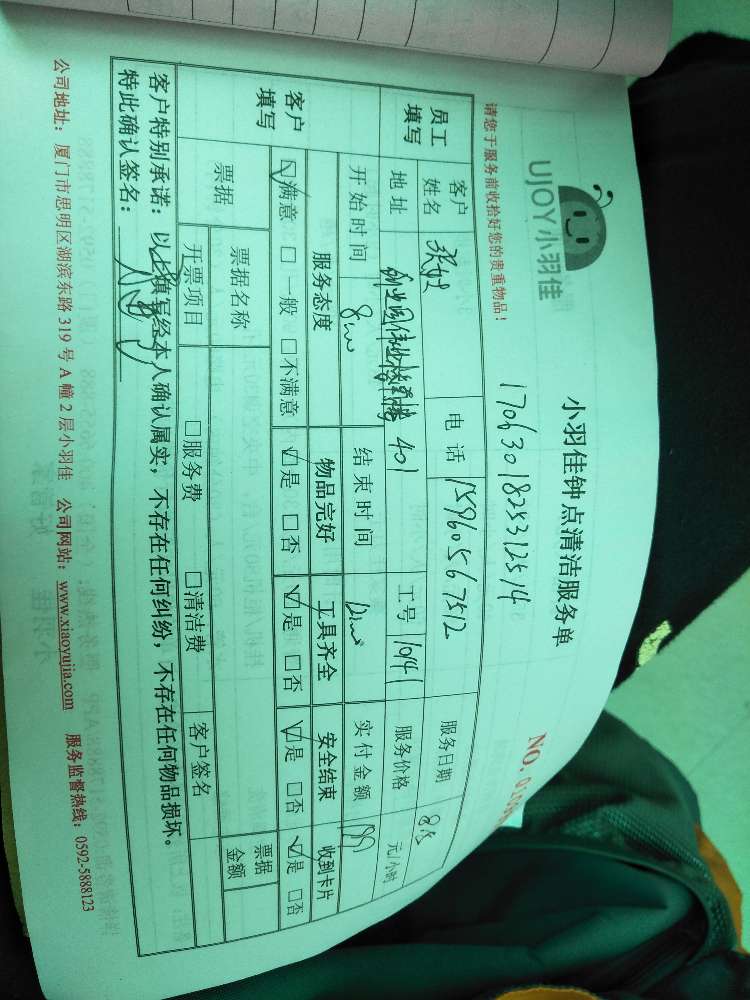 UJOY小羽佳
小羽佳钟点清洁服务单
请您于服务前收拾好您的贵重物品！
1706301825312514
NO.
员工填写
客户姓名
电话 15960567512
服务日期
地址 401
工号 10141
服务价格 元/小时
开始时间 8:00
结束时间 12:00
实付金额
客户填写
服务态度 物品完好 工具齐全 安全结束 收到卡片
☑满意 □一般 □不满意 ☑是 □否 ☑是 □否 ☑是 □否 ☑是 □否
票据
票据名称
票据金额
开票项目 □服务费 □清洁费 客户签名
客户特别承诺：以上填写经本人确认属实，不存在任何纠纷，不存在任何物品损坏。
特此确认签名：
公司地址：厦门市思明区湖滨东路319号A幢2层小羽佳 公司网站：www.xiaoyujia.com 服务监督热线：0592-5888123